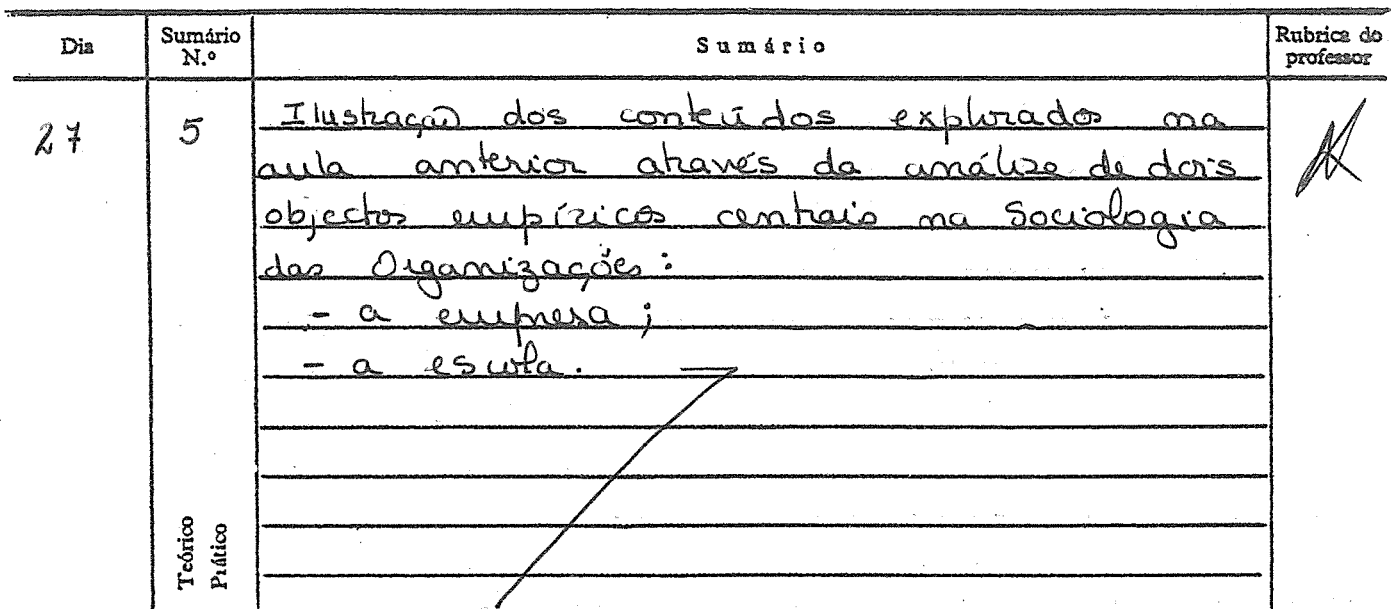 Dia
Sumário
N.º
Sumário
Rubrica do
professor
27
5
Ilustração dos conteúdos explorados na
aula anterior através da análise de dois
objectos empíricos centrais na Sociologia
das Organizações:
- a empresa;
- a escola.
Teórico
Prático